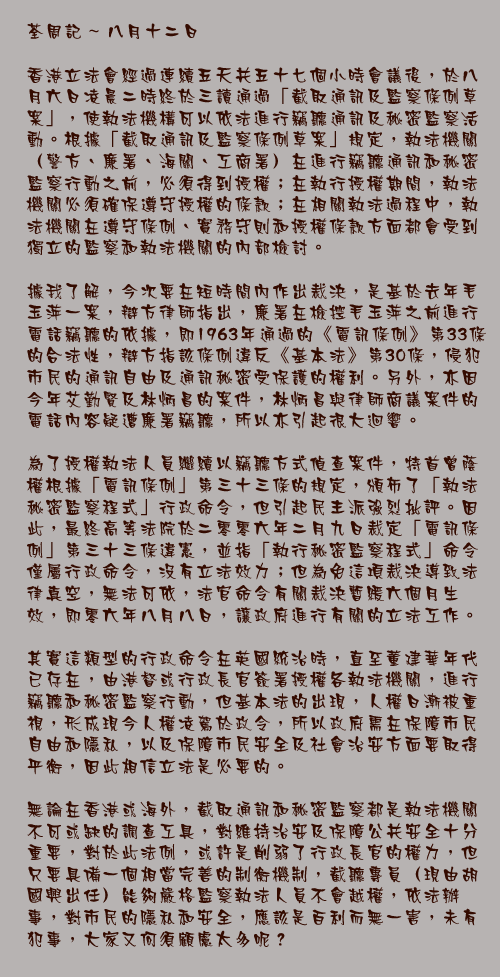 荃周記 ~ 八月十二日
香港立法會經過連續五天共五十七個小時會議後，於八
月六日凌晨二時終於三讀通過「截取通訊及監察條例草
案」，使執法機構可以依法進行竊聽通訊及秘密監察活
動。根據「截取通訊及監察條例草案」規定，執法機關
（警方、廉署、海關、工商署）在進行竊聽通訊和秘密
監察行動之前，必須得到授權；在執行授權期間，執法
機關必須確保遵守授權的條款；在相關執法過程中，執
法機關在遵守條例、實務守則和授權條款方面都會受到
獨立的監察和執法機關的內部檢討。
據我了解，今次要在短時間內作出裁決，是基於去年毛
玉萍一案，辯方律師指出，廉署在檢控毛玉萍之前進行
電話竊聽的依據，即1963年通過的《電訊條例》第33條
的合法性，辯方指該條例違反《基本法》第30條，侵犯
市民的通訊自由及通訊秘密受保護的權利。另外，亦因
今年艾勤賢及林炳昌的案件，林炳昌與律師商議案件的
電話內容疑遭廉署竊聽，所以亦引起很大迴響。
為了授權執法人員繼續以竊聽方式偵查案件，特首曾蔭
權根據「電訊條例」第三十三條的規定，頒布了「執法
秘密監察程式」行政命令，但引起民主派強烈批評。因
此，最終高等法院於二零零六年二月九日裁定「電訊條
例」第三十三條違憲，並指「執行秘密監察程式」命令
僅屬行政命令，沒有立法效力；但為免這項裁決導致法
律真空，無法可依，法官命令有關裁決暫緩六個月生
效，即零六年八月八日，讓政府進行有關的立法工作。
其實這類型的行政命令在英國統治時，直至董建華年代
已存在，由港督或行政長官簽署授權各執法機關，進行
竊聽和秘密監察行動，但基本法的出現，人權日漸被重
視，形成現今人權凌駕於政令，所以政府需在保障市民
自由和隱私，以及保障市民安全及社會治安方面要取得
平衡，因此相信立法是必要的。
無論在香港或海外，截取通訊和秘密監察都是執法機關
不可或缺的調查工具，對維持治安及保障公共安全十分
重要，對於此法例，或許是削弱了行政長官的權力，但
只要具備一個相當完善的制衡機制，截聽專員（現由胡
國興出任）能夠嚴格監察執法人員不會越權，依法辦
事，對市民的隱私和安全，應該是百利而無一害，未有
犯事，大家又何須顧慮太多呢？